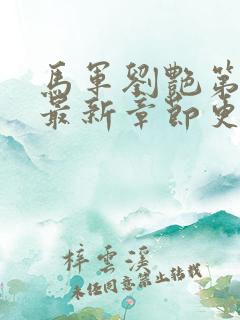 馬軍劉艷第
最新章節更
梓雲溪
未经同意禁止转载